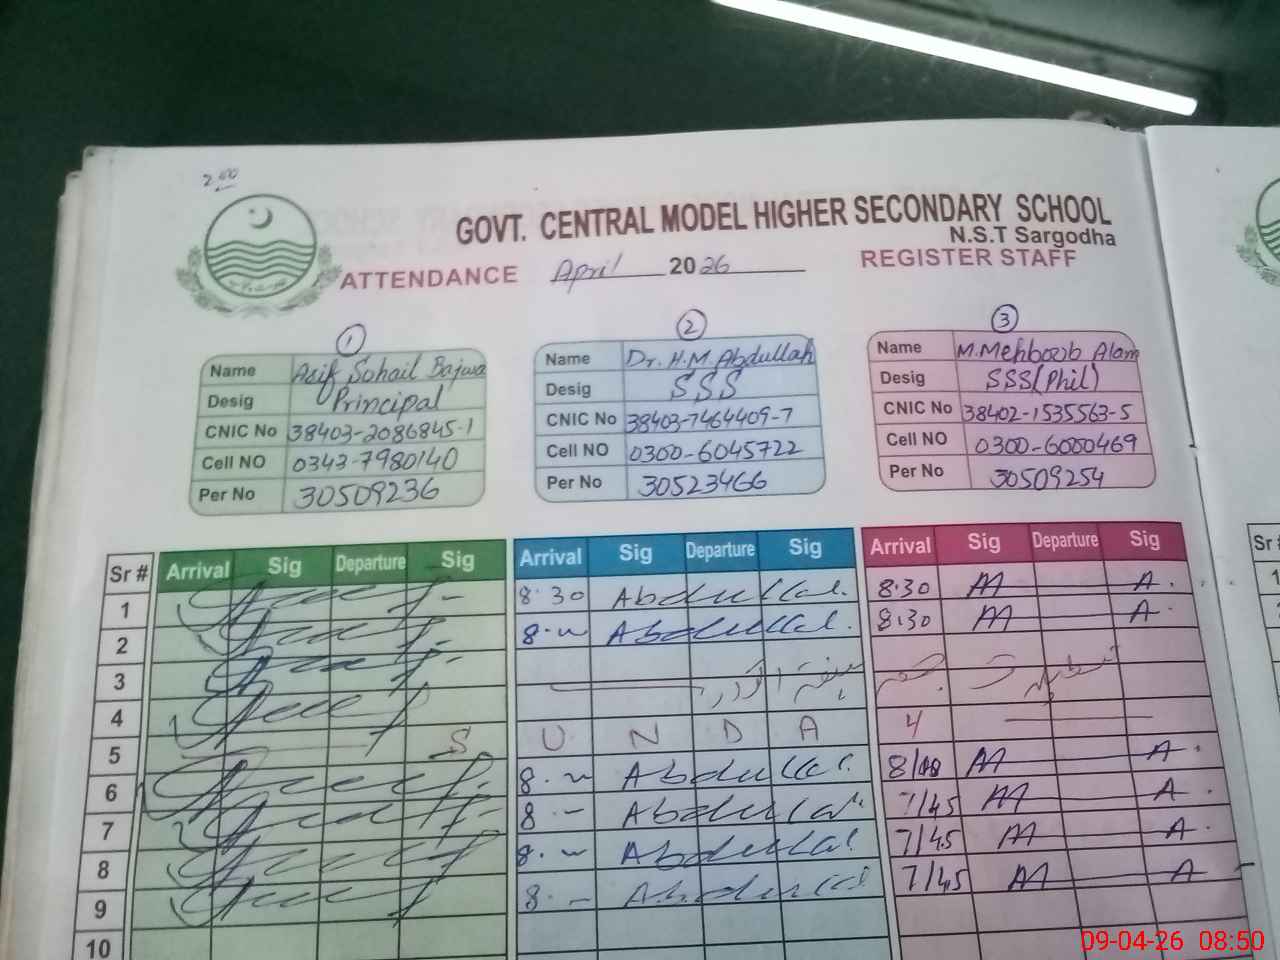 2.00
GOVT. CENTRAL MODEL HIGHER SECONDARY SCHOOL
N.S.T Sargodha
ATTENDANCE April 2026 REGISTER STAFF
1 2 3
Name Asif Sohail Bajwa
Desig Principal
CNIC No 38403-2086845-1
Cell NO 0343-7980140
Per No 30509236
Name Dr. H.M. Abdullah
Desig SSS
CNIC No 38403-7464409-7
Cell NO 0300-6045722
Per No 30523466
Name M. Mehboob Alam
Desig SSS(Phil)
CNIC No 38402-1535563-5
Cell NO 0300-6000469
Per No 30509254
Sr # Arrival Sig Departure Sig Arrival Sig Departure Sig Arrival Sig Departure Sig Sr #
1 8.30 Abdullah. 8.30 M A.
2 8. Abdullah. 8.30 M A.
3
4
5 S U N D A 4
6 8. Abdullah. M A.
7 8. Abdullah 7/45 M A.
8 8. Abdullah. 7/45 M A.
9 8. Abdullah 7/45 M A.
10
09-04-26 08:50